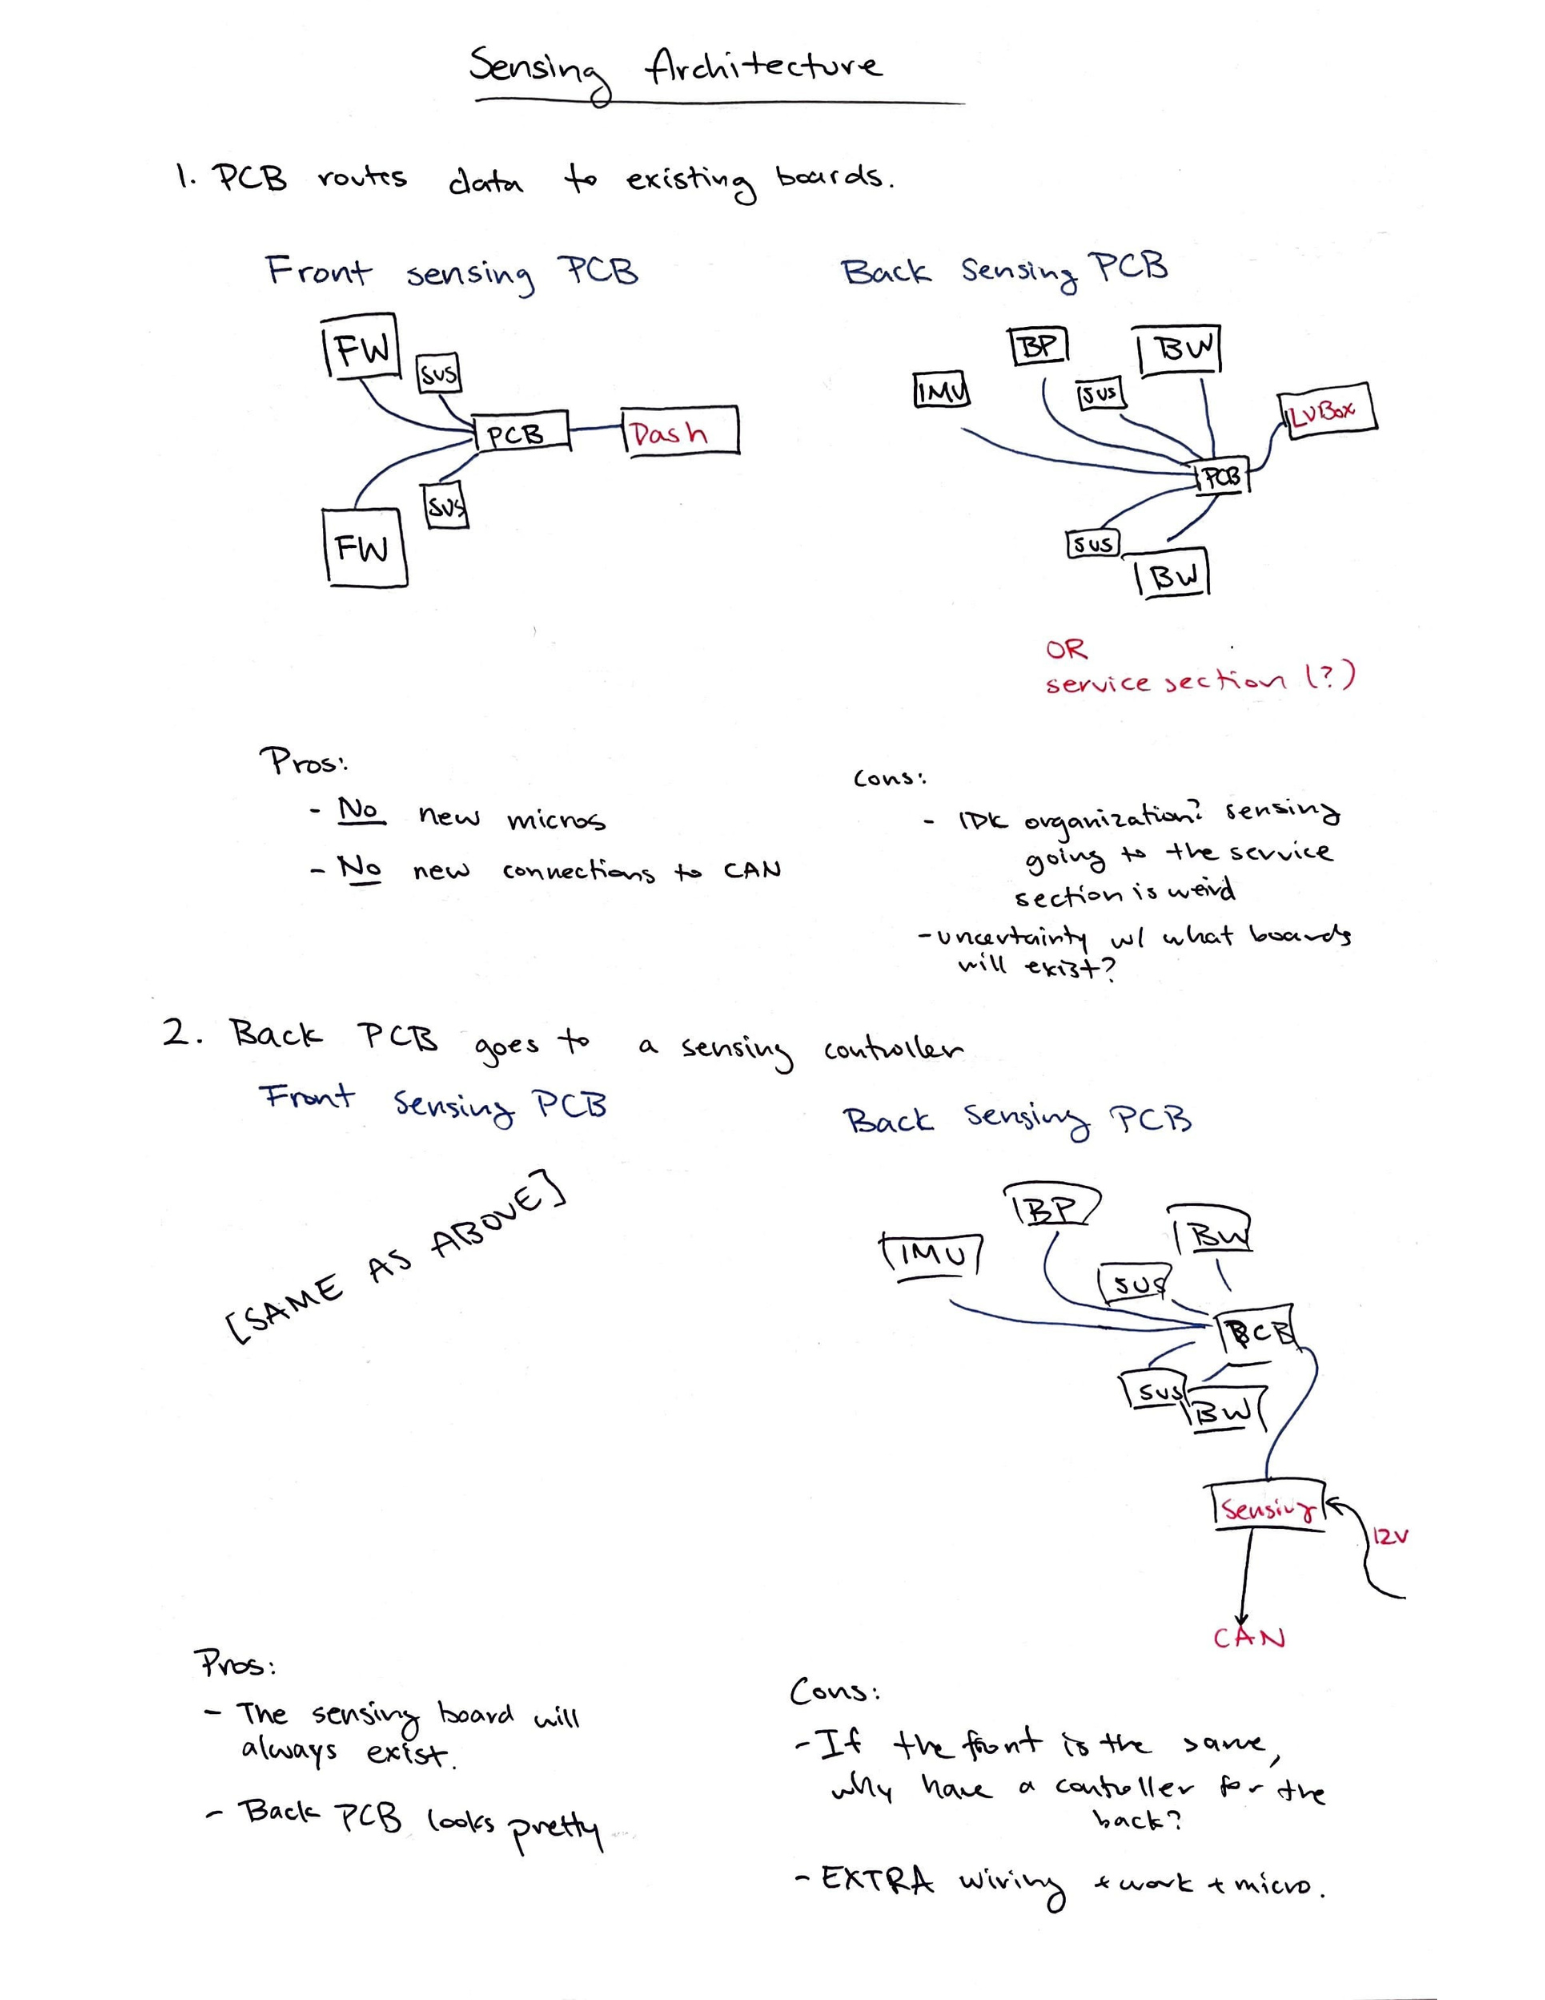 Sensing Architecture
1. PCB routes data to existing boards.
Front sensing PCB
FW
SUS
PCB
Dash
SUS
FW
Back Sensing PCB
IMU
BP
SUS
BW
LVBox
PCB
SUS
BW
OR
service section (?)
Pros:
- No new micros
- No new connections to CAN
Cons:
- IDK organization? sensing
going to the service
section is weird
- uncertainty w/ what boards
will exist?
2. Back PCB goes to a sensing controller
Front Sensing PCB
[SAME AS ABOVE]
Back Sensing PCB
IMU
BP
BW
SUS
PCB
SUS
BW
Sensing
12V
CAN
Pros:
- The sensing board will
always exist.
- Back PCB looks pretty
Cons:
- If the front is the same,
why have a controller for the
back?
- EXTRA wiring + work + micro.